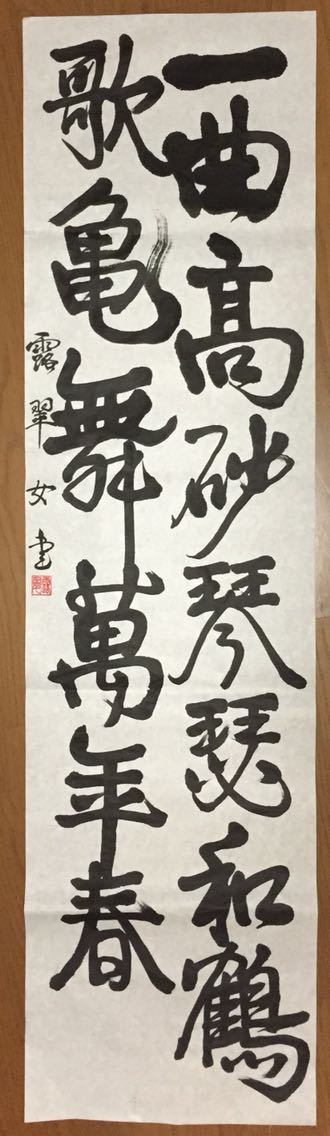 一曲高砂琴瑟和鶴
歌亀舞萬年春
露翠女書